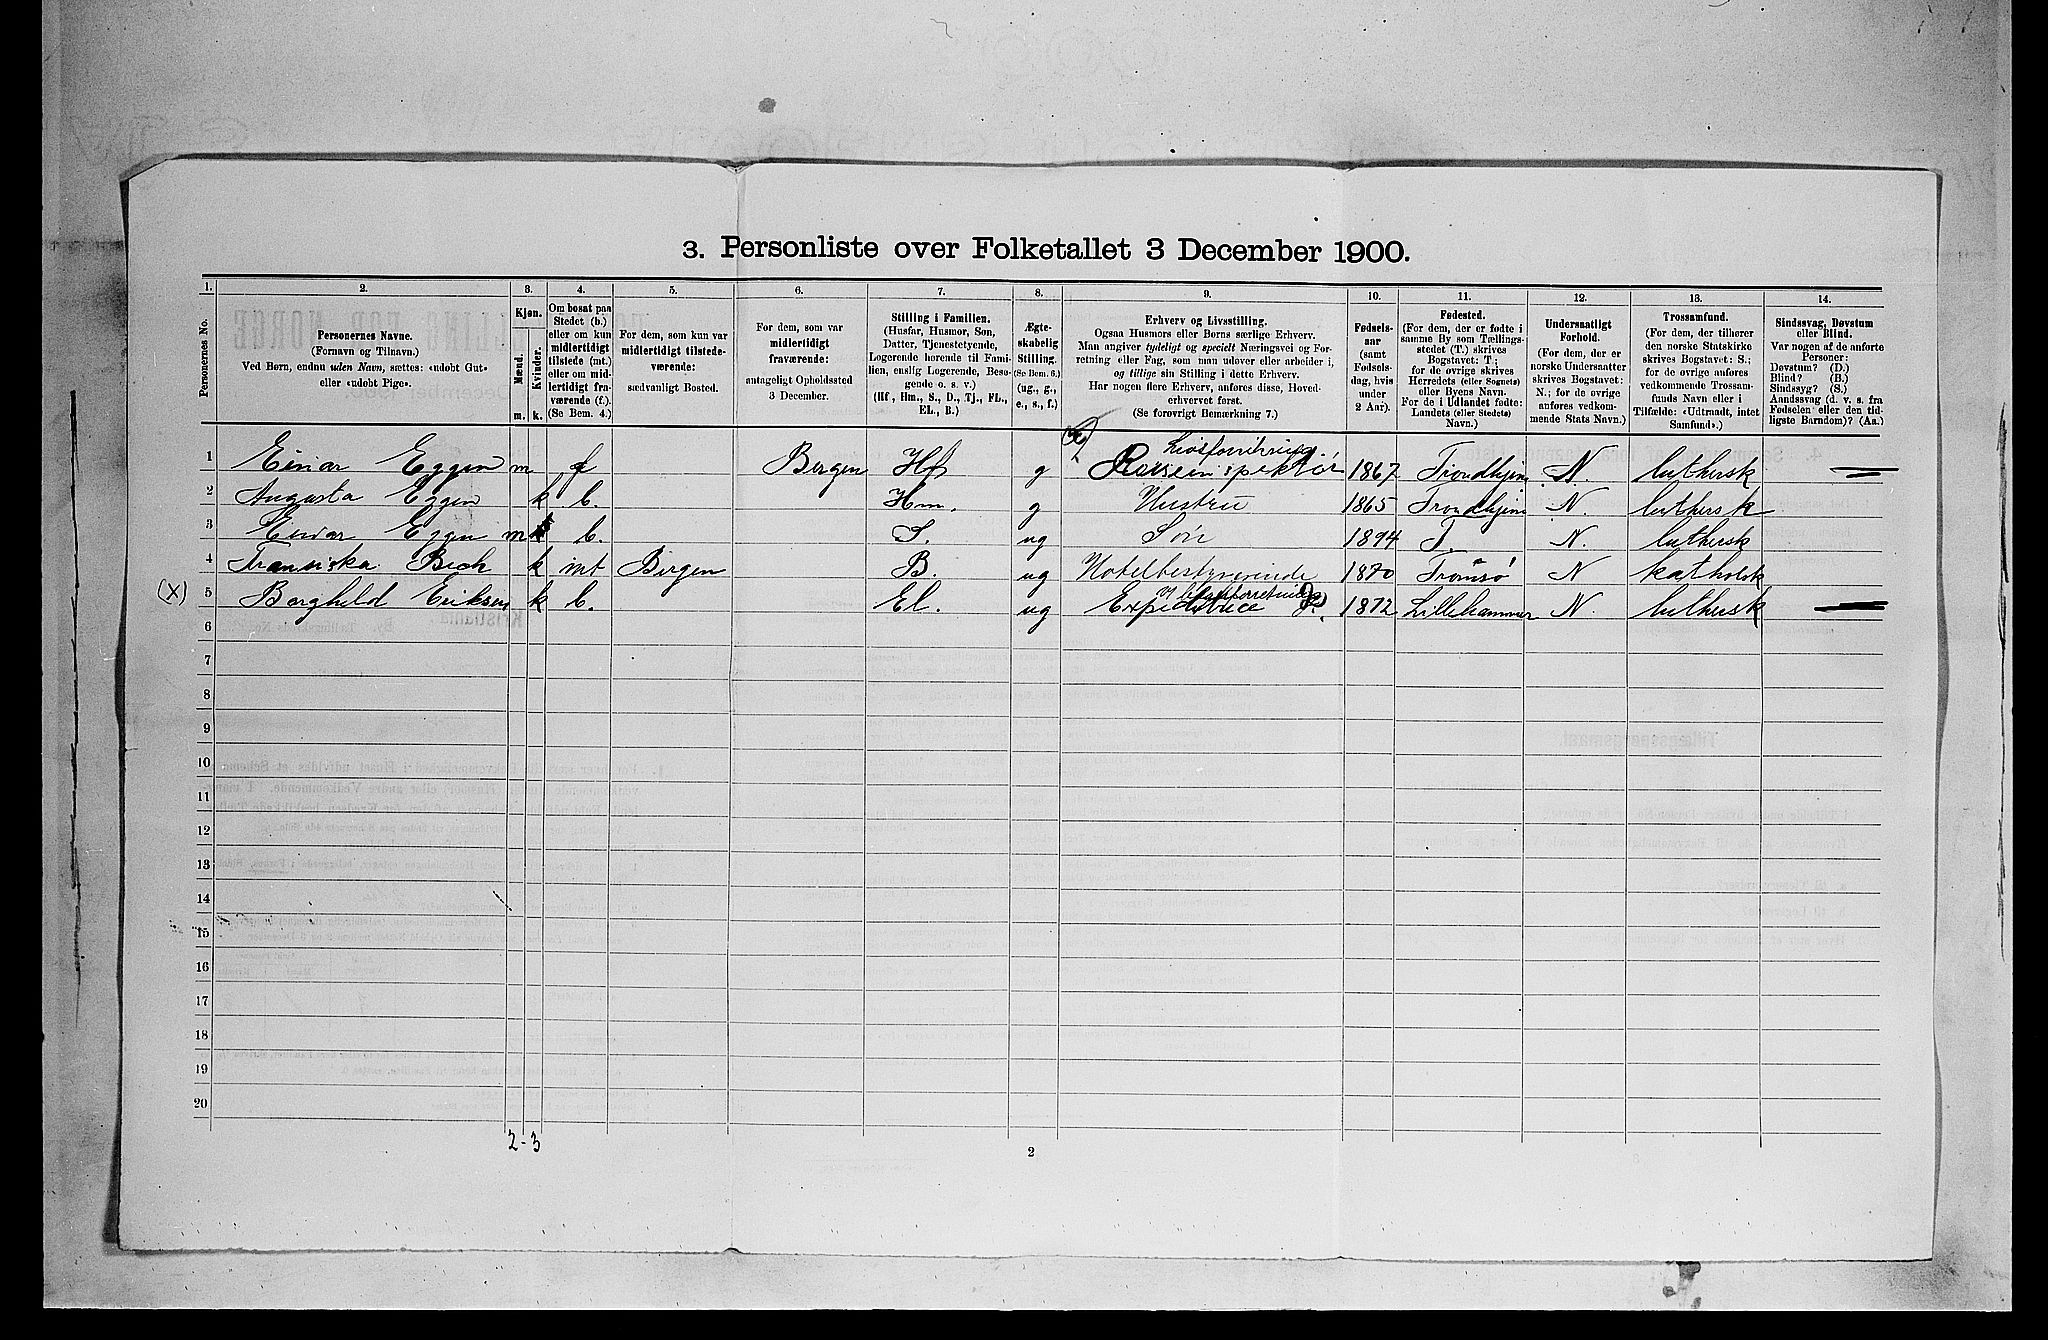 3. Personliste over Folketallet 3 December 1900.
1. 2. 3. 4. 5. 6. 7. 8. 9. 10. 11. 12. 13. 14.
Personernes No.
Personernes Navne.
(Fornavn og Tilnavn.)
Ved Børn, endnu uden Navn, sættes: «udøbt Gut»
eller «udøbt Pige».
Kjøn.
Mænd.
Kvinder.
m. k.
Om bosat paa
Stedet (b.)
eller om kun
midlertidigt
tilstede (mt.)
eller om mid-
lertidigt fra-
værende (f.)
(Se Bem. 4.)
For dem, som kun var
midlertidigt tilstede-
værende:
sædvanligt Bosted.
For dem, som var
midlertidigt
fraværende:
antageligt Opholdssted
3 December.
Stilling i Familien.
(Husfar, Husmor, Søn,
Datter, Tjenestetyende,
Logerende hørende til Fami-
lien, enslig Logerende, Besø-
gende o. s. v.)
(Hf, Hm., S., D., Tj., FL.,
EL., B.)
Ægte-
skabelig
Stilling.
(Se Bem. 6.)
(ug., g.,
e., s., f.)
Erhverv og Livsstilling.
Ogsaa Husmors eller Børns særlige Erhverv.
Man angiver tydeligt og specielt Næringsvei og For-
retning eller Fag, som man udøver eller arbeider i,
og tillige sin Stilling i dette Erhverv.
Har nogen flere Erhverv, anføres disse, Hoved-
erhvervet først.
(Se forøvrigt Bemærkning 7.)
Fødsels-
aar
(samt
Fødsels-
dag, hvis
under
2 Aar).
Fødested.
(For dem, der er fødte i
samme By som Tællings-
stedet (T.) skrives
Bogstavet: T.;
for de øvrige skrives
Herredets (eller Sognets)
eller Byens Navn.
For de i Udlandet fødte:
Landets (eller Stedets)
Navn.)
Undersaatligt
Forhold.
(For dem, der er
norske Undersaatter
skrives Bogstavet:
N.; for de øvrige
anføres vedkom-
mende Stats Navn.)
Trossamfund.
(For dem, der tilhører
den norske Statskirke
skrives Bogstavet: S.;
for de øvrige anføres
vedkommende Trossam-
funds Navn eller i
Tilfælde: «Udtraadt, intet
Samfund».)
Sindssvag, Døvstum
eller Blind.
Var nogen af de anførte
Personer:
Døvstum? (D.)
Blind? (B.)
Sindssyg? (S.)
Aandssvag (d. v. s. fra
Fødselen eller den tid-
ligste Barndom)? (Aa.)
1 Einar Eggen m f Bergen Hf g Livsforsikrings Reiseinspektør 1867 Trondhjem N. luthersk
2 Augusta Eggen k b. Hm. g Hustru 1865 Trondhjem N. luthersk
3 Einar Eggen m b. S. ug Søn 1894 T. N. luthersk
4 Fransiska Bech k mt Bergen B. ug Hotelbestyrerinde 1870 Tromsø N katholsk
(X) 5 Borghild Eriksen k b. El. ug Expeditrice 1872 Lillehammer N. luthersk
6
7
8
9
10
11
12
13
14
15
16
17
18
19
20
2-3
2